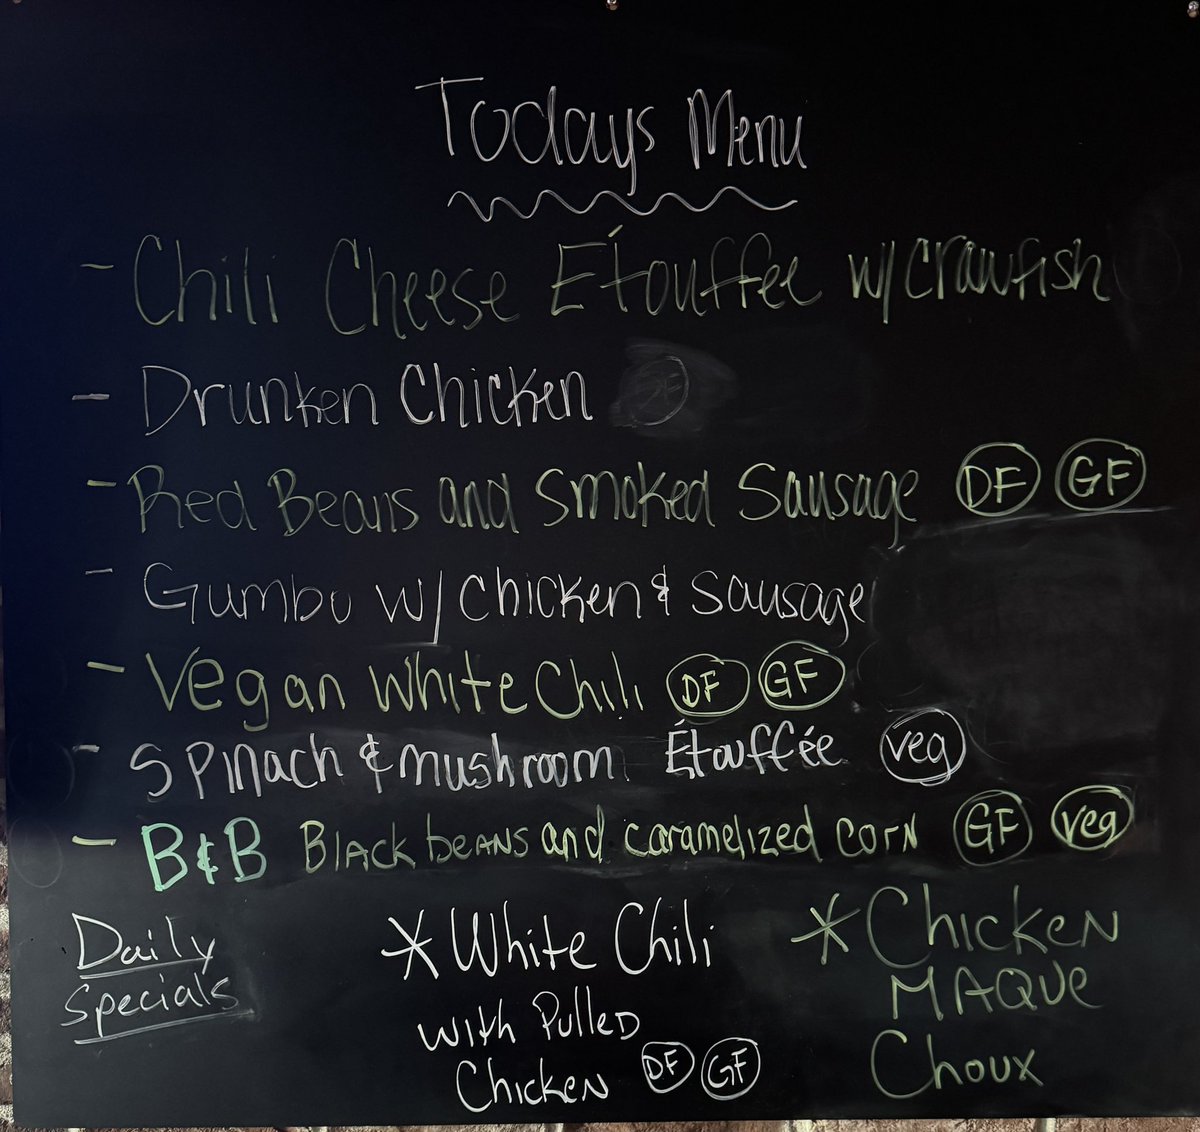 Todays Menu
- Chili Cheese Étouffee w/ crawfish
- Drunken Chicken DF
- Red Beans and Smoked Sausage DF GF
- Gumbo w/ chicken & sausage
- Vegan White Chili DF GF
- Spinach & mushroom Étouffée veg
- B&B Black beans and caramelized corn GF veg
Daily
Specials
* White Chili
with Pulled
Chicken DF GF
* Chicken
Maque
Choux